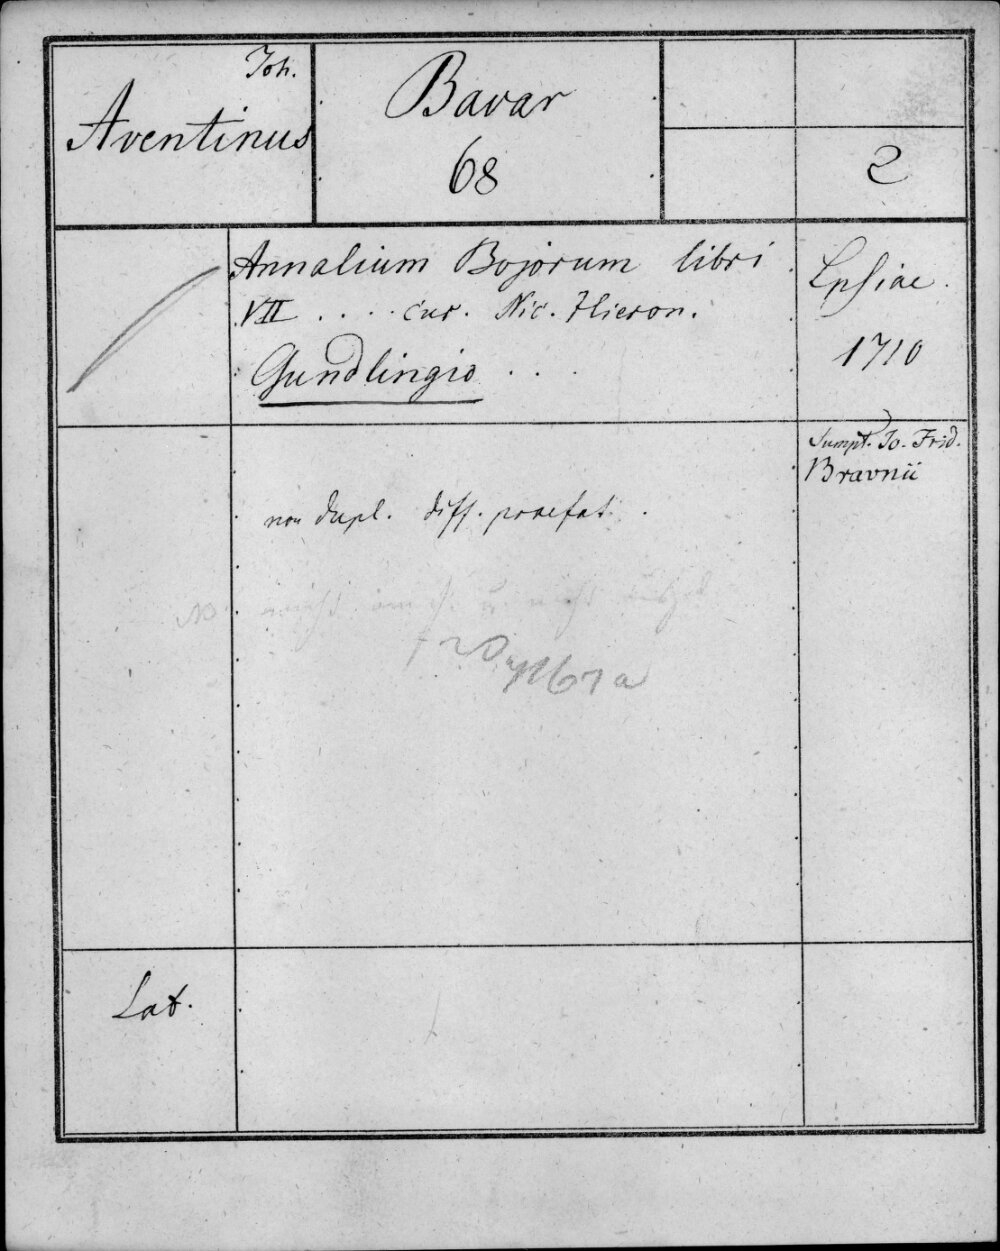 Joh.
Aventinus
Bavar
68
2
Annalium Bojorum libri
VII .... cur. Nic. Hieron.
Gundlingio ...
Lpsiae.
1710
Sumpt. Jo. Frid.
Bravnii
non dupl. diff. praefat.
67a
Lat.